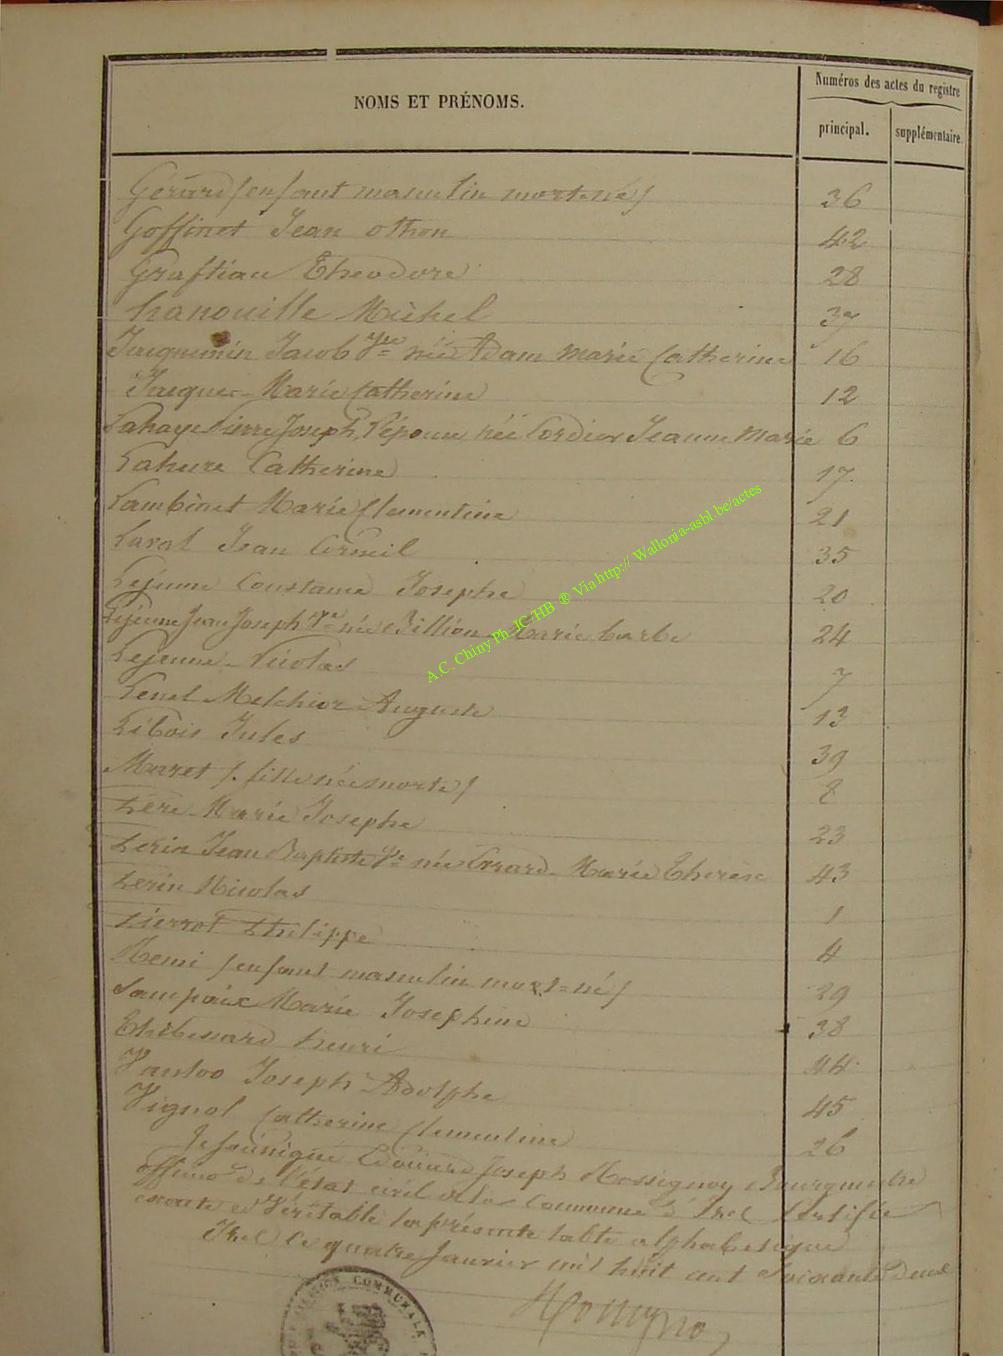 NOMS ET PRÉNOMS.
Numéros des actes du registre
principal.
supplémentaire.
Gérard (enfant masculin mort-né) 36
Goffinet Jean Othon 42
Graftiau Théodore 28
hanouille Michel 37
Jacquemin Jacob Vve née Adam Marie Catherine 16
Jacques Marie Catherine 12
Lahaye Pierre Joseph, l'épouse née Cordier Jeanne Marie 6
Lahure Catherine 17
Lambinet Marie Clementine 21
Laval Jean 35
Lejeune Constance Josephe 20
Lejeune Jean Joseph Vve née Billion Marie barbe 24
Lejeune Nicolas 7
Lenel Melchior Auguste 13
Libois Jules 39
Maret (fille née morte) 8
Péré Marie Josephe 23
Perin Jean Baptiste Vve née Evrard Marie Therèse 43
Perin Nicolas 1
Pierrot Philippe 4
Remi (enfant masculin mort-né) 29
Sampaix Marie Josephine 38
Thibessard henri 44
Vanloo Joseph Adolphe 45
Vignol Catherine Clementine 26
Je soussigné Edouard Joseph Rossignon Bourgmestre
officier de l'état civil de la Commune d'Izel Certifie
exacte et Véritable la présente table alphabétique
Izel le quatre Janvier mil huit cent soixante deux
Rossignon
COMMUNALE
A.C. Chiny Ph. JC-HB ® Via http:// Wallonia-asbl.be/actes